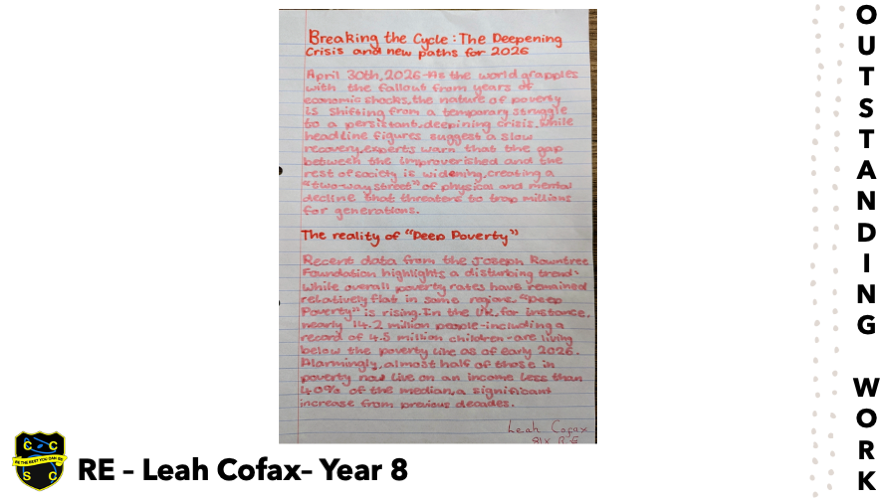 Breaking the Cycle: The Deepening
Crisis and new paths for 2026
April 30th, 2026-As the world grapples
with the fallout from years of
economic shocks, the nature of poverty
is shifting from a temporary struggle
to a persistant, deepining crisis. While
headline figures suggest a slow
recovery, experts warn that the gap
between the improverished and the
rest of society is widening, creating a
"two-way street" of physical and mental
decline that threatens to trap millions
for generations.
The reality of "Deep Poverty"
Recent data from the Joseph Rowntree
Foundation highlights a disturbing trend-
While overall poverty rates have remained
relatively flat in some regions, "Deep
Poverty" is rising. In the UK, for instance,
nearly 14.2 million people-including a
record of 4.5 million children-are living
below the poverty line as of early 2026.
Alarmingly, almost half of those in
poverty now live on an income less than
40% of the median, a significant
increase from previous decades.
Leah Cofax
C C
BE THE BEST YOU CAN BE
S C
RE – Leah Cofax– Year 8
OUTSTANDING WORK